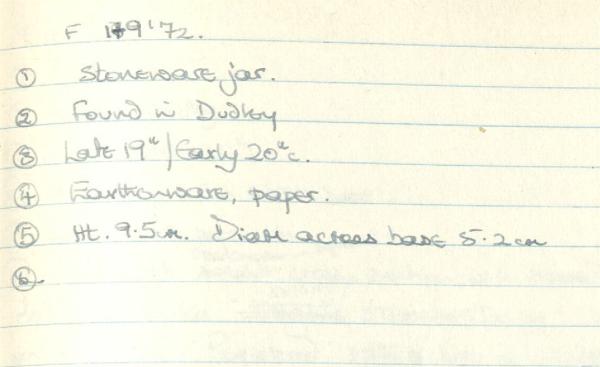 F 179'72.
① Stoneware jar.
② Found in Dudley
③ Late 19th/Early 20th c.
④ Earthenware, paper.
⑤ Ht. 9.5cm. Diam across base 5.2cm
⑥.